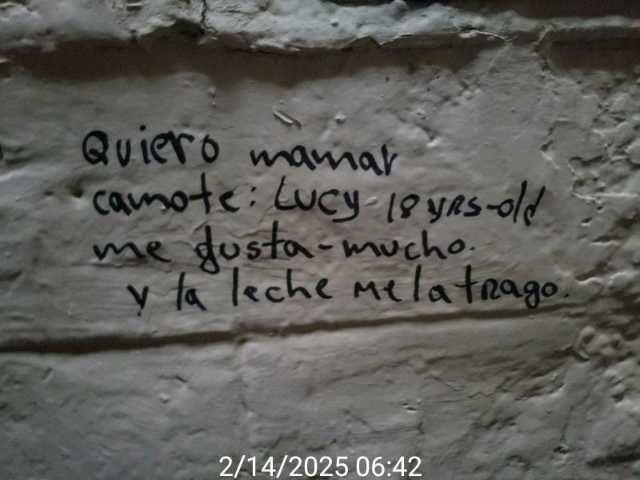 Quiero mamar
camote: Lucy 18 yRs-old
me gusta-mucho.
y la leche me la trago.
2/14/2025 06:42